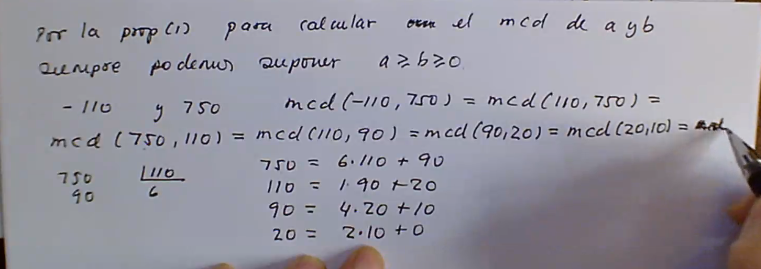 Por la prop(1) para calcular el mcd de a y b
siempre podemos suponer a ≥ b ≥ 0
-110 y 750 mcd(-110, 750) = mcd(110, 750) =
mcd (750, 110) = mcd(110, 90) = mcd(90,20) = mcd(20,10) =
750 |110
90 6
750 = 6·110 + 90
110 = 1·90 + 20
90 = 4·20 + 10
20 = 2·10 + 0